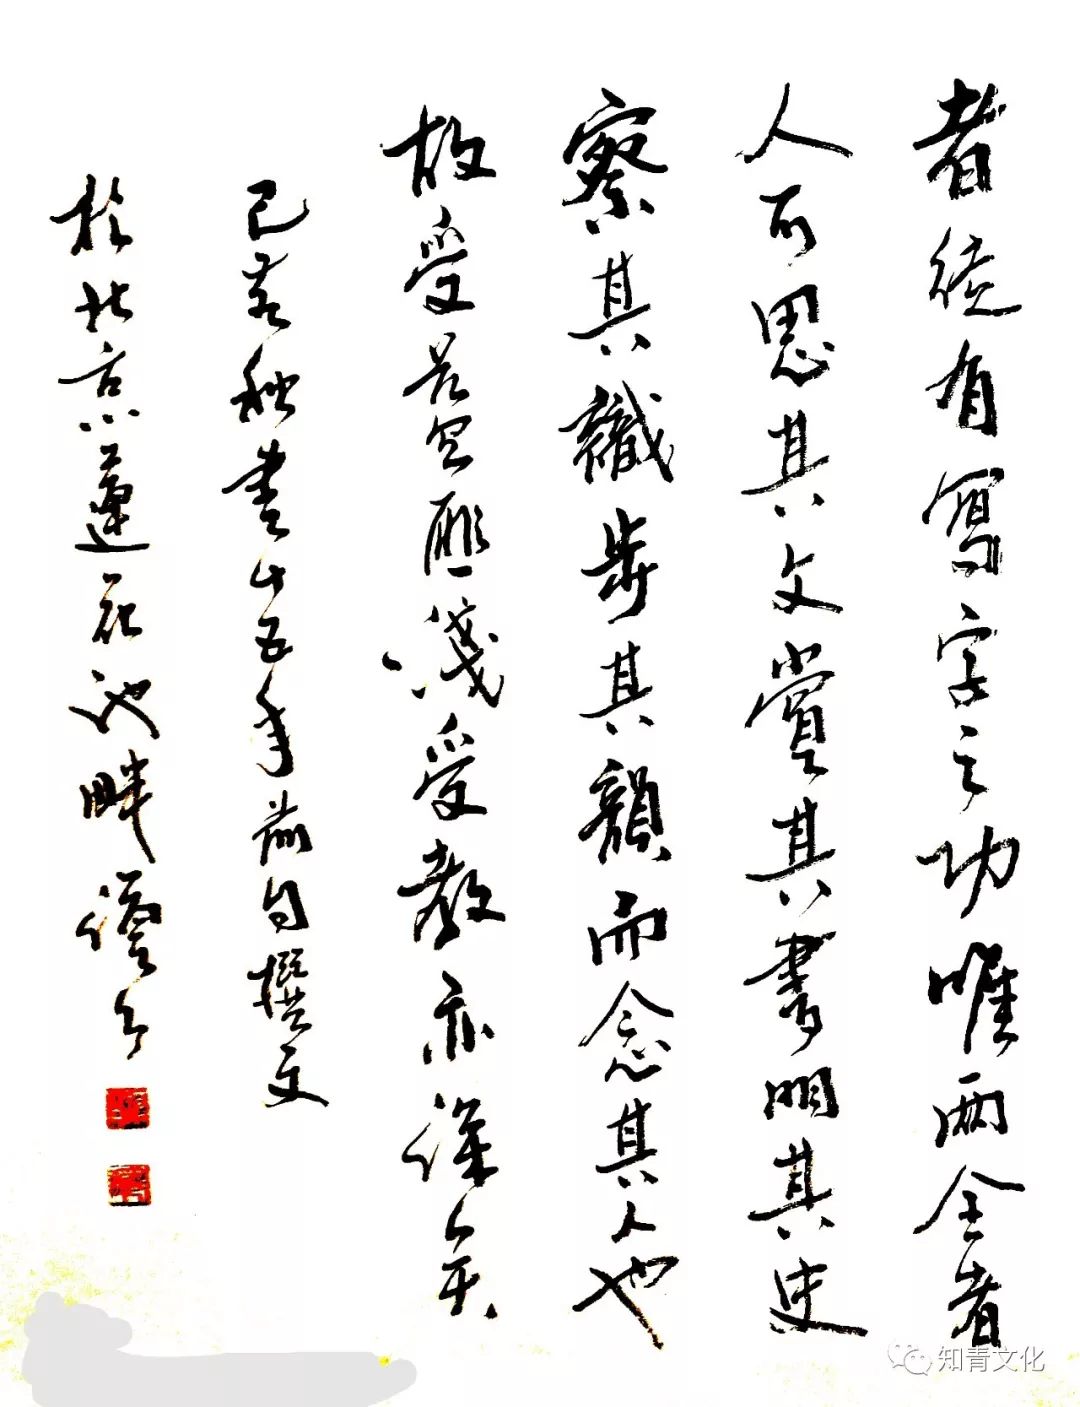 者徒有寫字之功唯兩全者
人可思其文賞其書明其史
察其識步其韻而念其人也
故受益匪淺受教亦深矣
己亥秋書廿五年前自撰文
於北京蓮花池畔
知青文化